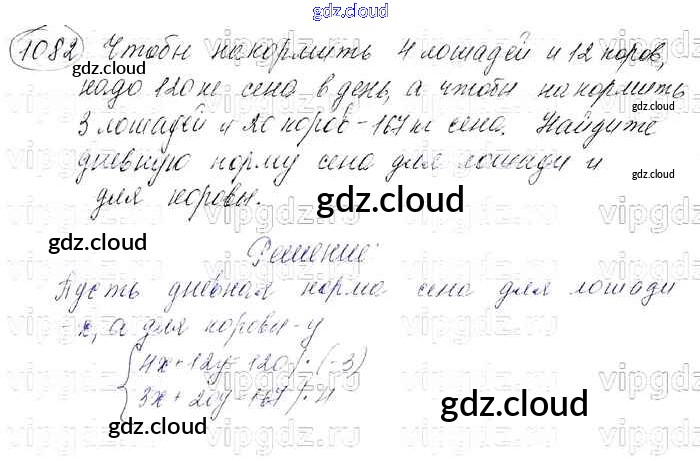 gdz.cloud
1082 Чтобы накормить 4 лошадей и 12 коров,
gdz.cloud
надо 120 кг сена в день, а чтобы накормить
gdz.cloud
3 лошадей и 20 коров - 167 кг сена. Найдите
дневную норму сена для лошади и
gdz.cloud
для коровы.
gdz.cloud
gdz.cloud
Решение:
Пусть дневная норма сена для лошади
- x, а для коровы - y
{4x + 12y = 120 | · (-3)
3x + 20y = 167 | · 4
gdz.cloud
gdz.cloud